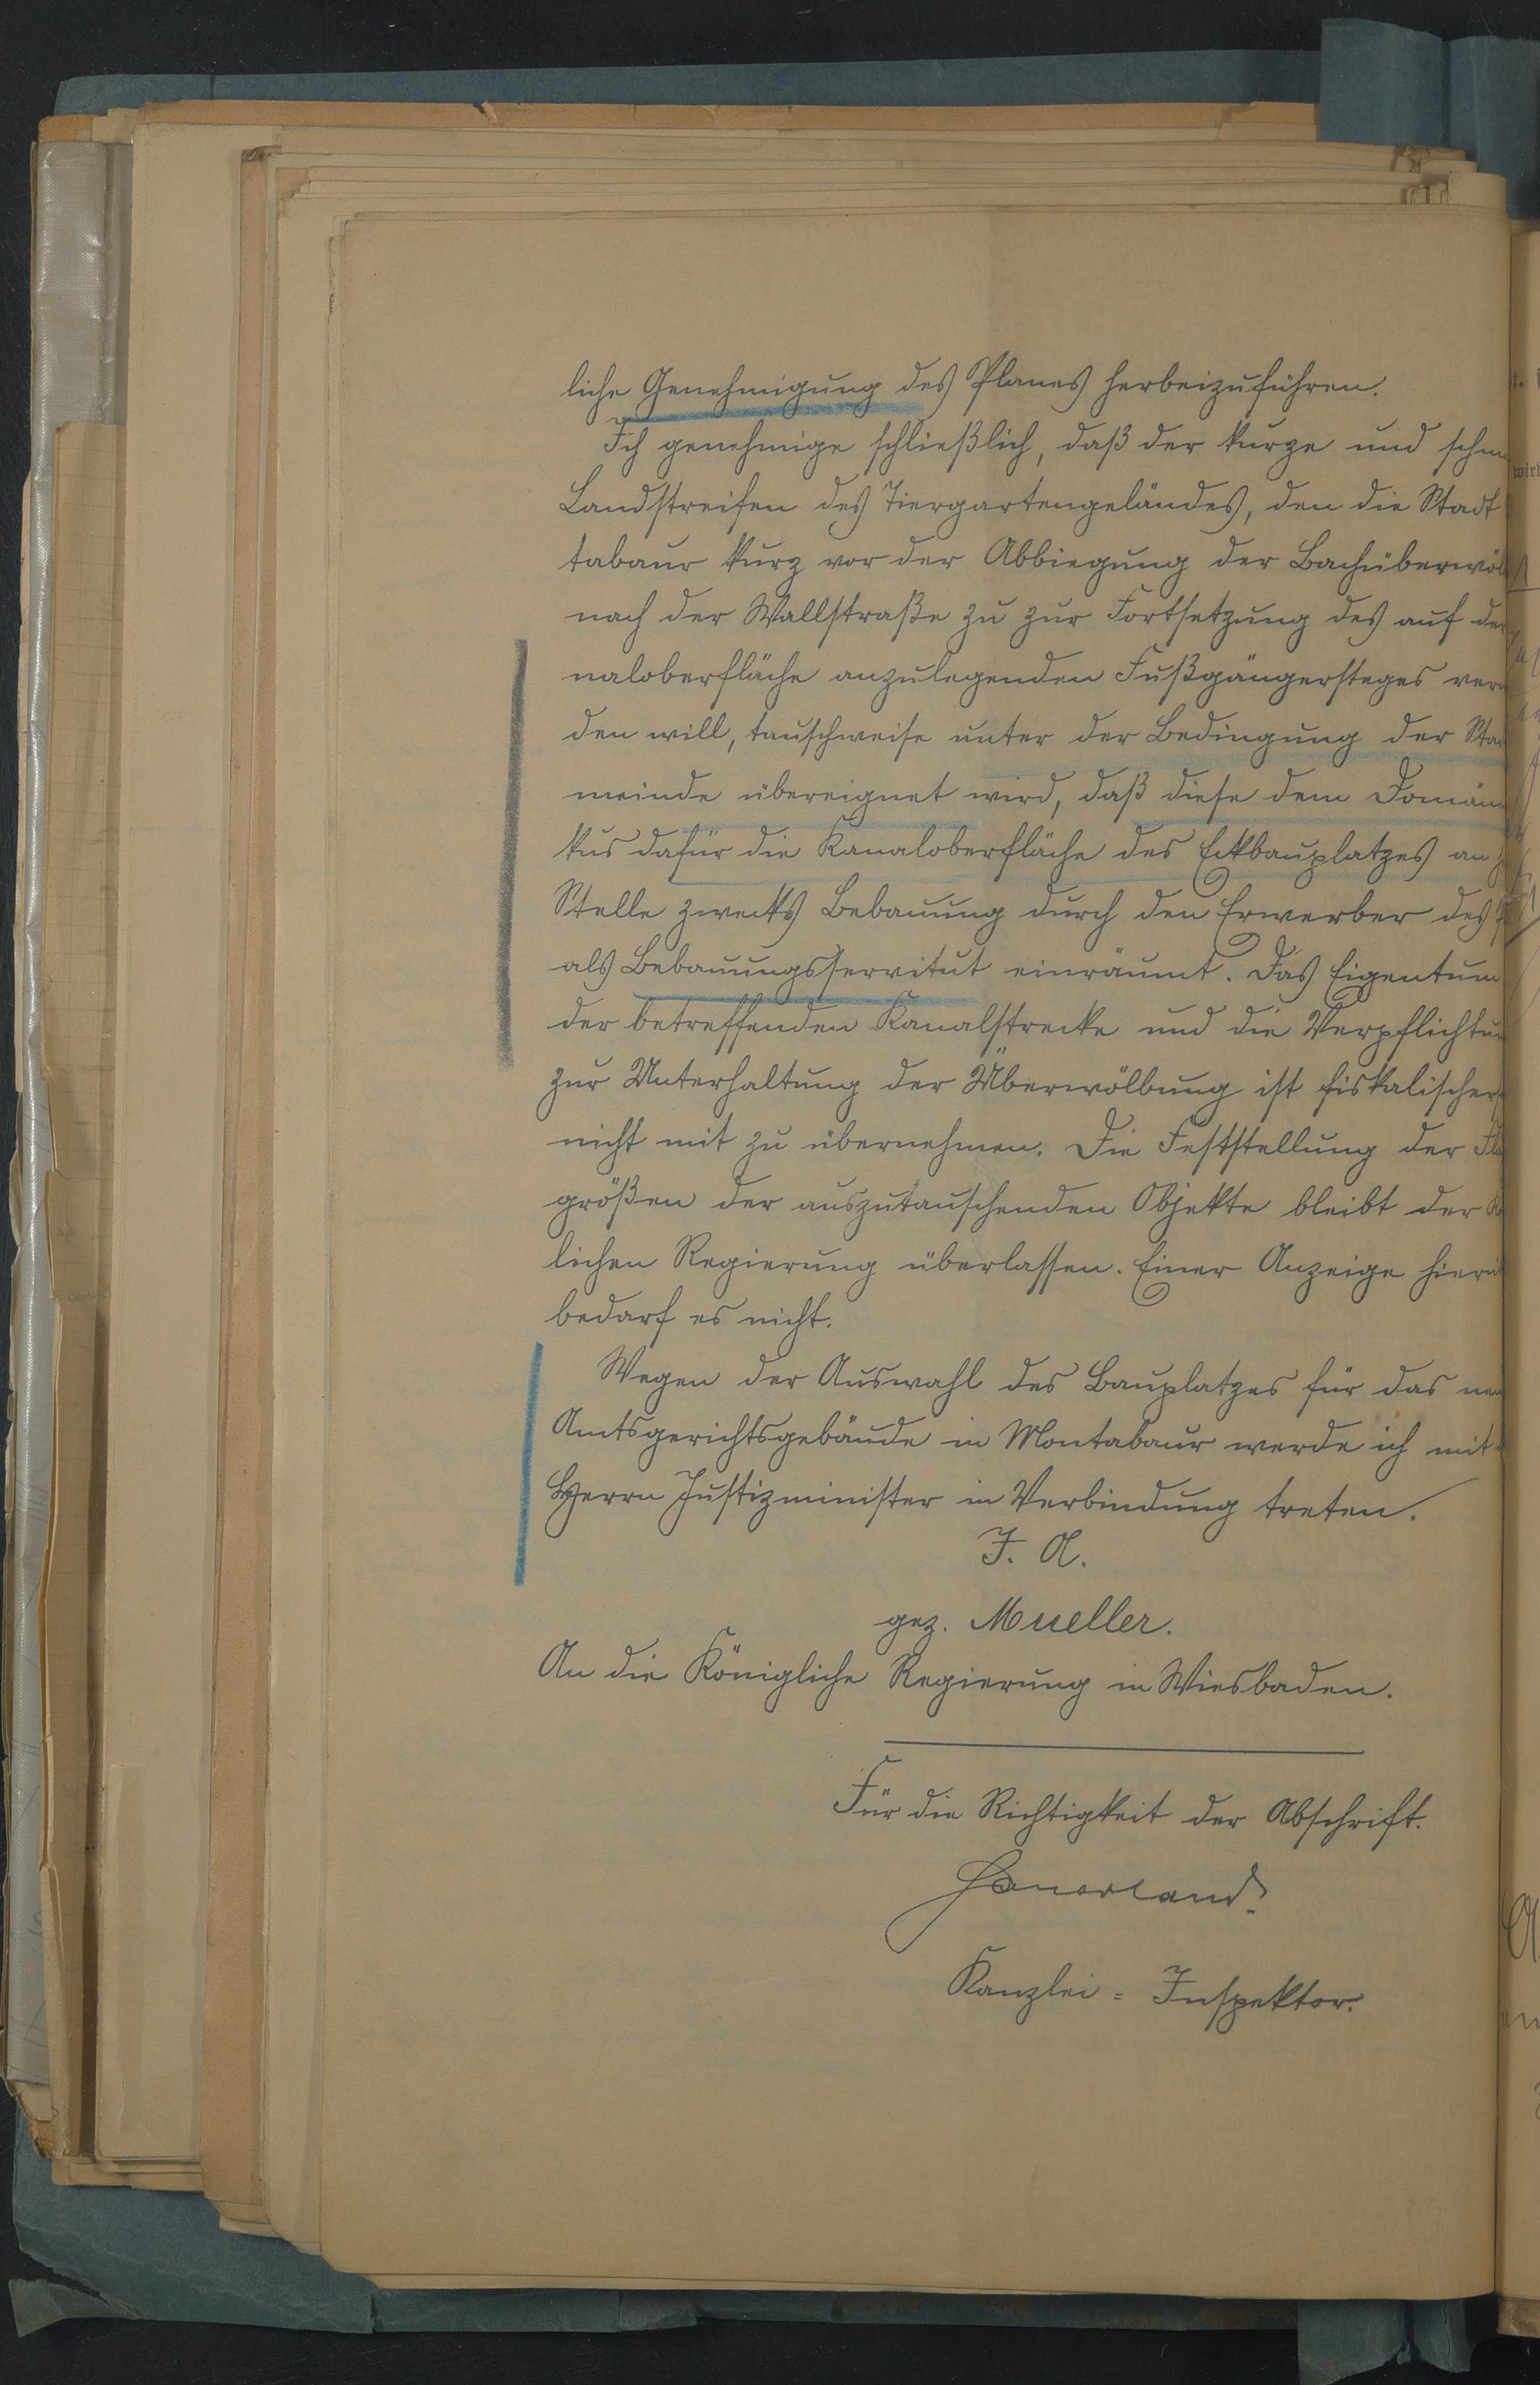 liche Genehmigung des Planes herbeizuführen.
Ich genehmige schließlich, daß der kurze und schm
Landstreifen des Tiergartengeländes, den die Stadt
tabaur kurz vor der Abbiegung der Bachüberwöl
nach der Wallstraße zu zur Fortsetzung des auf der
naloberfläche anzulegenden Fußgängersteges verw
den will, tauschweise unter der Bedingung der Stad
meinde übereignet wird, daß diese dem Domänen
kus dafür die Kanaloberfläche des Eckbauplatzes an
Stelle zwecks Bebauung durch den Erwerber des
als Bebauungsservitut einräumt. Das Eigentum
der betreffenden Kanalstrecke und die Verpflichtun
zur Unterhaltung der Überwölbung ist fiskalischers
nicht mit zu übernehmen. Die Feststellung der Flä
größen der auszutauschenden Objekte bleibt der K
lichen Regierung überlassen. Einer Anzeige hierü
bedarf es nicht.
Wegen der Auswahl des Bauplatzes für das neu
Amtsgerichtsgebäude in Montabaur werde ich mit
Herrn Justizminister in Verbindung treten.
I. A.
gez. Mueller.
An die Königliche Regierung in Wiesbaden.
Für die Richtigkeit der Abschrift.
Kanzlei = Inspektor.